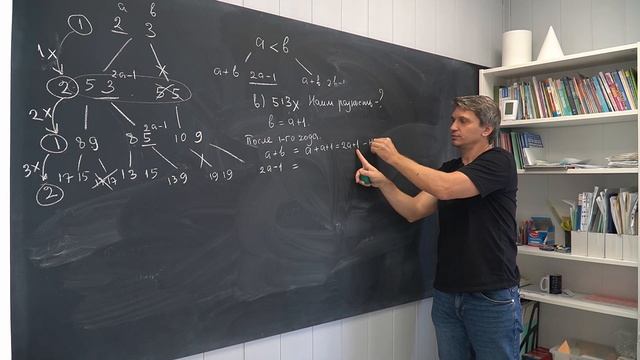 a b
① 2 3
1x
② 5 3 2a-1 5 5
2x
① 8 9 8 5 2a-1 10 9
3x
② 17 15 17 17 13 15 13 9 19 19
a < b
a+b 2a-1 a+b 2b-1
b) 513x Наим разность-?
b = a+1.
После 1-го года.
a+b = a+a+1 = 2a+1
2a-1 =